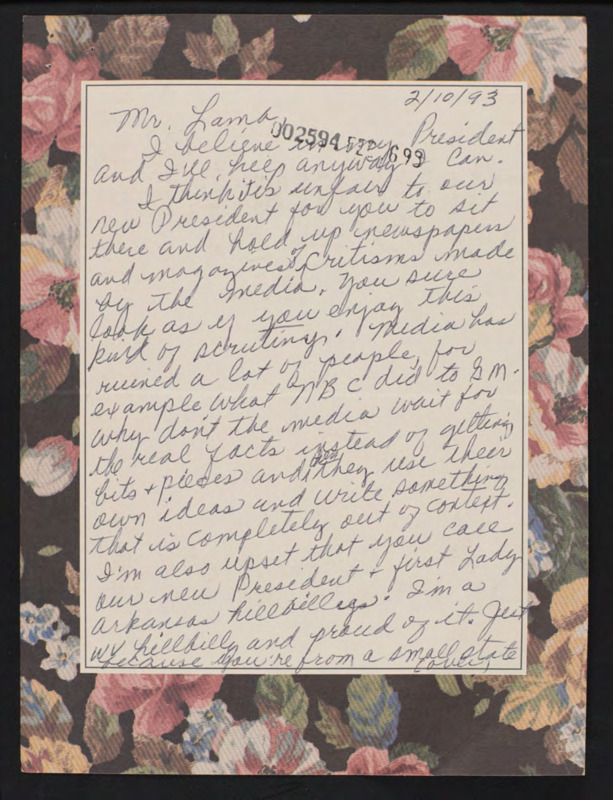 2/10/93
Mr. Lamb,
002594 FEB 16 93
I believe in my President
and I'll help anyway I can.
I think it's unfair to our
new President for you to sit
there and hold up newspapers
and magazines of Critisms made
by the media. You sure
look as if you enjoy this
kind of scrutiny. Media has
ruined a lot of people, for
example what NBC did to GM.
why don't the media wait for
the real facts instead of getting
bits + pieces and then they use their
own ideas and write something
that is completely out of context.
I'm also upset that you call
our new President + first Lady
arkansas hillbillies. I'm a
WV hillbilly and proud of it. Just
because you're from a small state
(over)